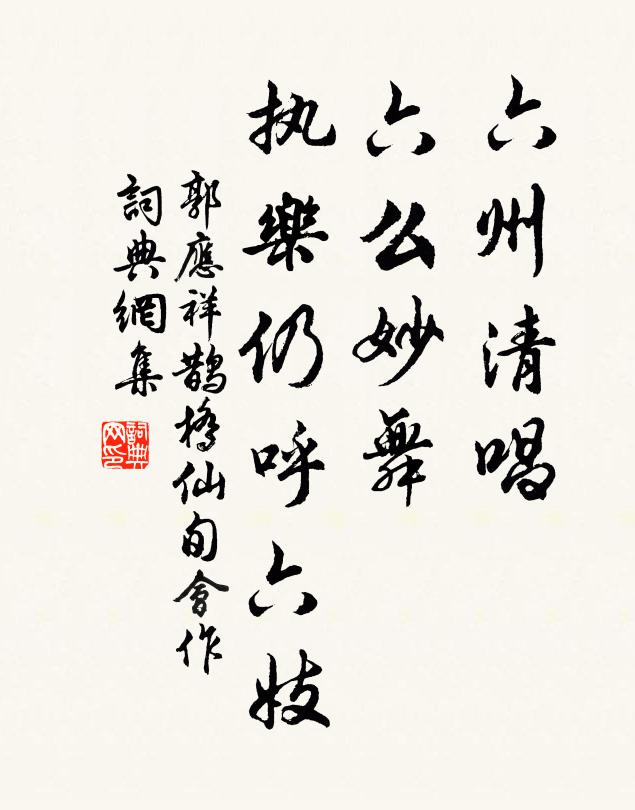 六州清唱
六么妙舞
执樂仍呼六妓
郭應祥鵲橋仙旬會作
詞典網集
詞典网印